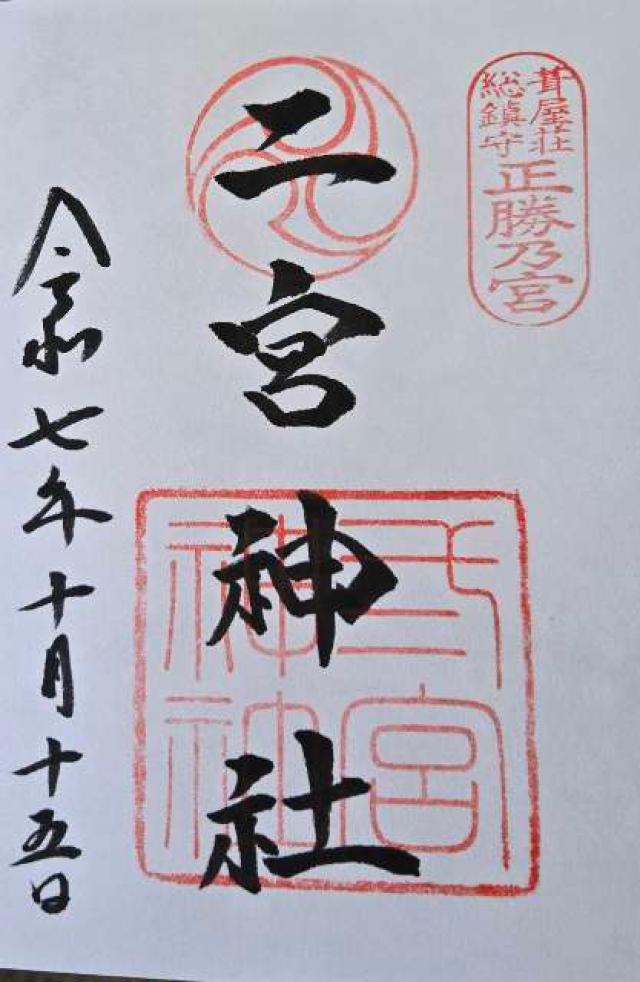 葺屋荘
総鎮守
正勝乃宮
二宮神社
令和七年十月十五日